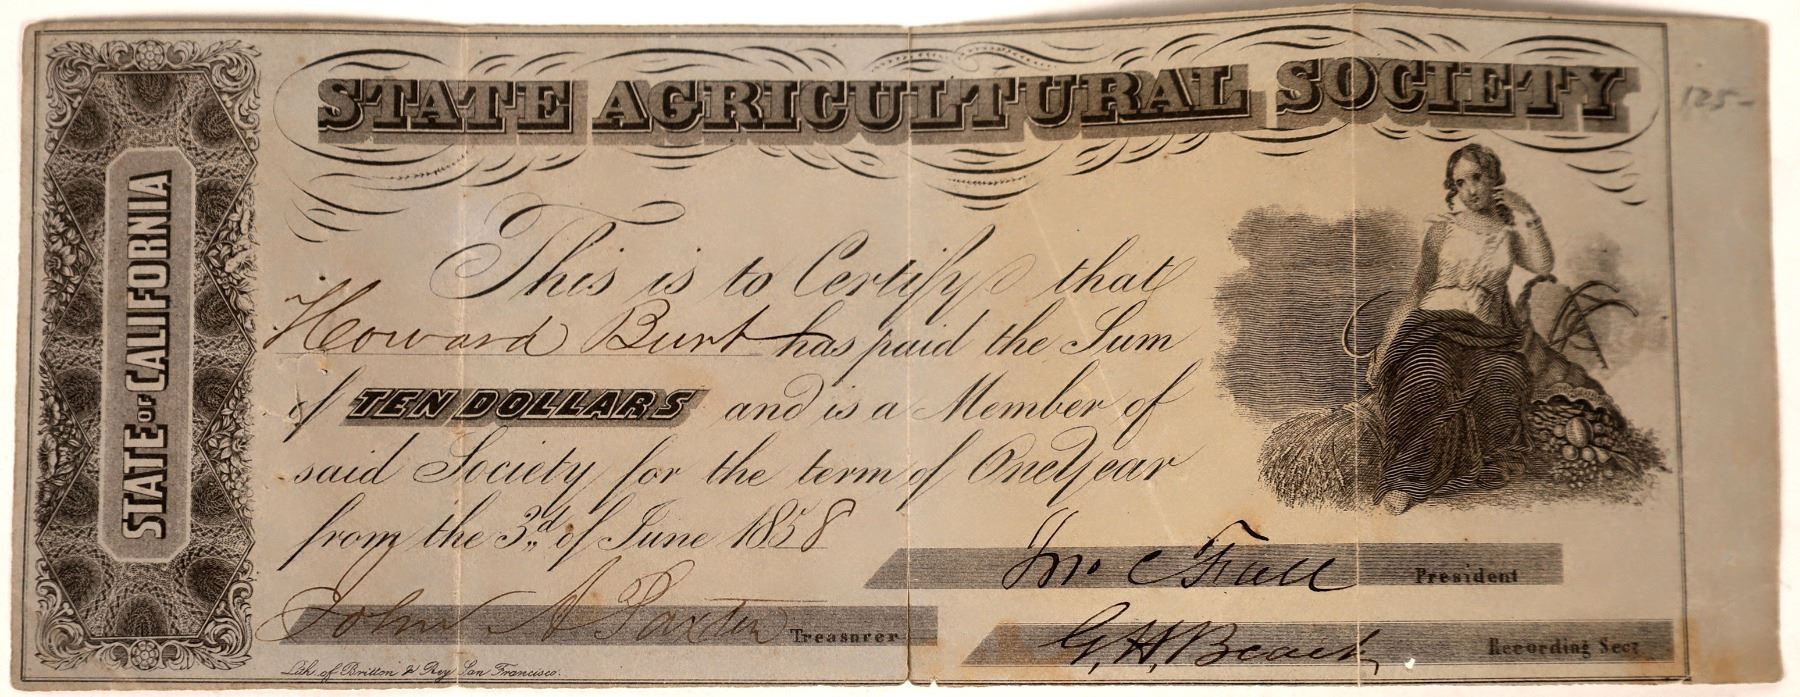 STATE AGRICULTURAL SOCIETY
125-
STATE OF CALIFORNIA
This is to Certify that
Howard Burt has paid the Sum
of TEN DOLLARS and is a Member of
said Society for the term of One Year
from the 3d of June 1858
Jno. C Fall President
John A Paxton Treasurer
G. H. Beach Recording Secy
Lith. of Britton & Rey San Francisco.